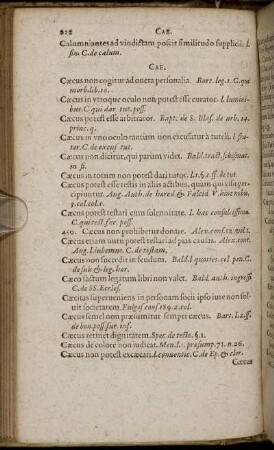 212 CAE.
Calumniantes ad vindictam poscit similitudo supplicii. l.
fin. C. de calum.
CAE.
Cæcus non cogitur ad onera personalia. Bart. leg. 1. C. qui
morb. lib. 10.
Cæcus in vtroque oculo non potest esse curator. l. lumini-
bus. C. qui dar. tut. poss.
Cæcus potest esse arbitrator. Bapt. de S. Blas. de arb. 14.
princ. q.
Cæcus in vno oculo tantùm non excusatur à tutela. l.
ter. C. de excus. tut.
Cæcus non dicitur, qui parùm videt. Bald. tract. schismat.
in si.
Cæcus in totum non potest dari tutor. l. 1. §. 1. ff. de tut.
Cæcus potest esse testis in aliis actibus, quàm qui visu per-
cipiuntur. Ang. Auth. de hæred. & Falcid.
9. col.
Cæcus potest testari cum solemnitate. l. hac consultissima.
C. qui test. fac. poss.
Cæcus non prohibetur donare. Alex. cons. 12. vol. 1.
Cæcus etiam nutu potest testari ad pias causas. Alex. cons.
Ang. C. de testam.
Cæcus non succedit in feudum. Bald. l. quoties. col. pen. C.
de suis & leg. hær.
Cæco factum legatum libri non valet. Bald. auth. ingressi
C. de SS. Eccles.
Cæcitas superueniens in personam socii ipso iure non sol-
uit societatem. Fulg. cons. 189. 2. col.
Cæcus semel non præsumitur semper cæcus. Bart. l. 2. ff.
de bon. poss. fur. inf.
Cæcus retinet dignitatem. Spec. de teste. §. 1.
Cæcus de colore non iudicat. Men. l. præsump. 71. n. 26.
Cæcus non potest excæcari. l. conuentic. C. de Ep. & cler.
Cæcus